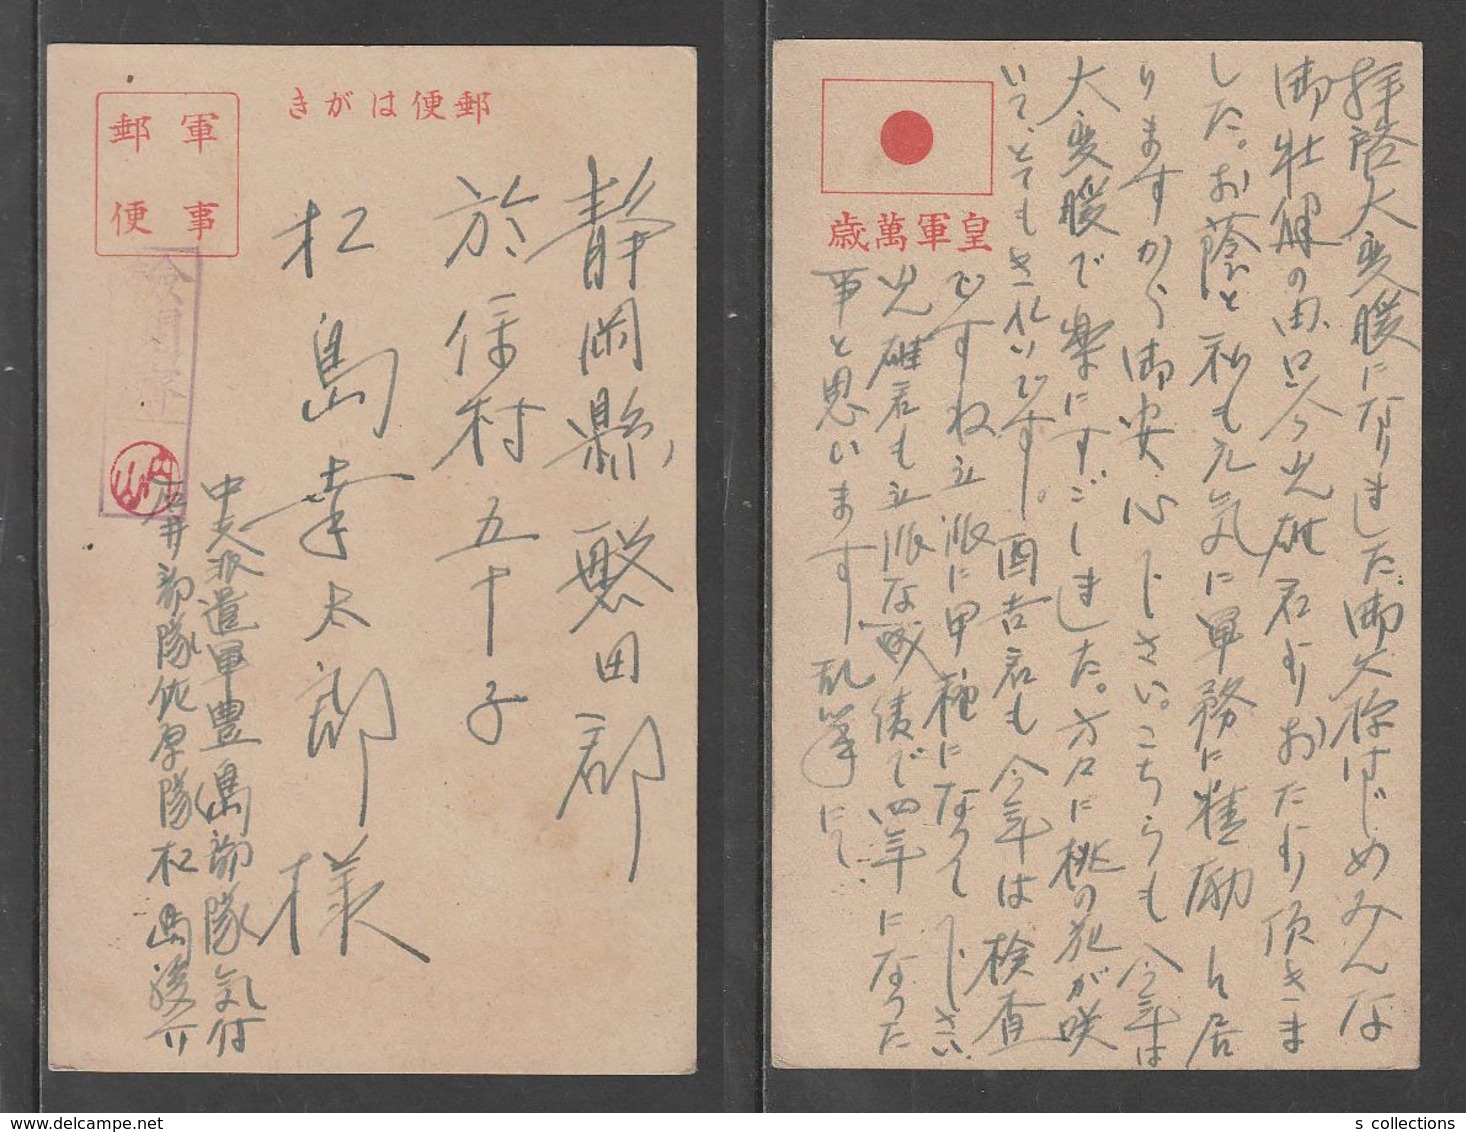 郵便はがき
軍事
郵便
静岡縣磐田郡
於保村五十子
松島幸太郎
様
中支派遣軍豊島部隊気付
石井部隊佐原隊松島
皇軍萬歳
拝啓大変暖になりました。御父様はじめみんな
御壮健の由只今光雄君よりおたより頂きま
した。お蔭と私も元気に軍務に精励し居
りますから御安心下さい。こちらも今年は
大変暖で楽にすごしました。方々に桃の花が咲
いて、とてもきれいです。酉吉君も今年は検査
ですね立派に甲種になって下さい
光雄君も立派な成績で四年になった
事と思います 乱筆にて
s collections